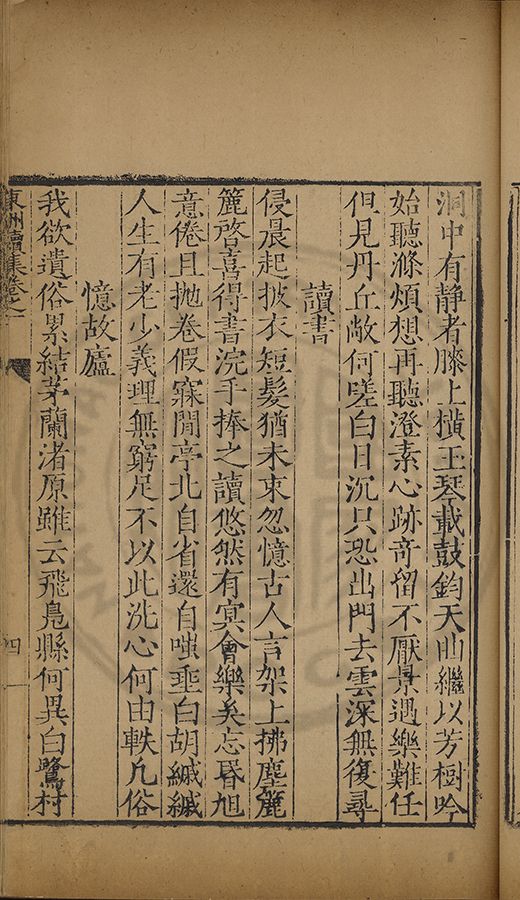 洞中有靜者膝上橫玉琴載鼓鈞天曲繼以芳樹吟
始聽滌煩想再聽澄素心跡奇留不厭景遇樂難任
但見丹丘敞何嗟白日沉只恐出門去雲深無復尋
讀書
侵晨起披衣短髮猶未束忽憶古人言架上拂塵簏
簏啓喜得書浣手捧之讀悠然有冥會樂矣忘昏旭
意倦且拋卷假寐閒亭北自省還自嗤垂白胡緘緘
人生有老少義理無窮足不以此洗心何由軼凡俗
憶故廬
我欲遺俗累結茅蘭渚原雖云飛鳧縣何異白鷺村
東州續集卷之一
四